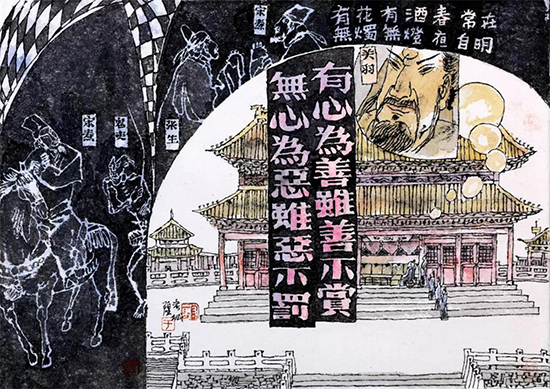 有花有酒春常在
無燭無燈夜自明
关羽
有心為善雖善不賞
無心為惡雖惡不罰
宋焘
张生
宋焘